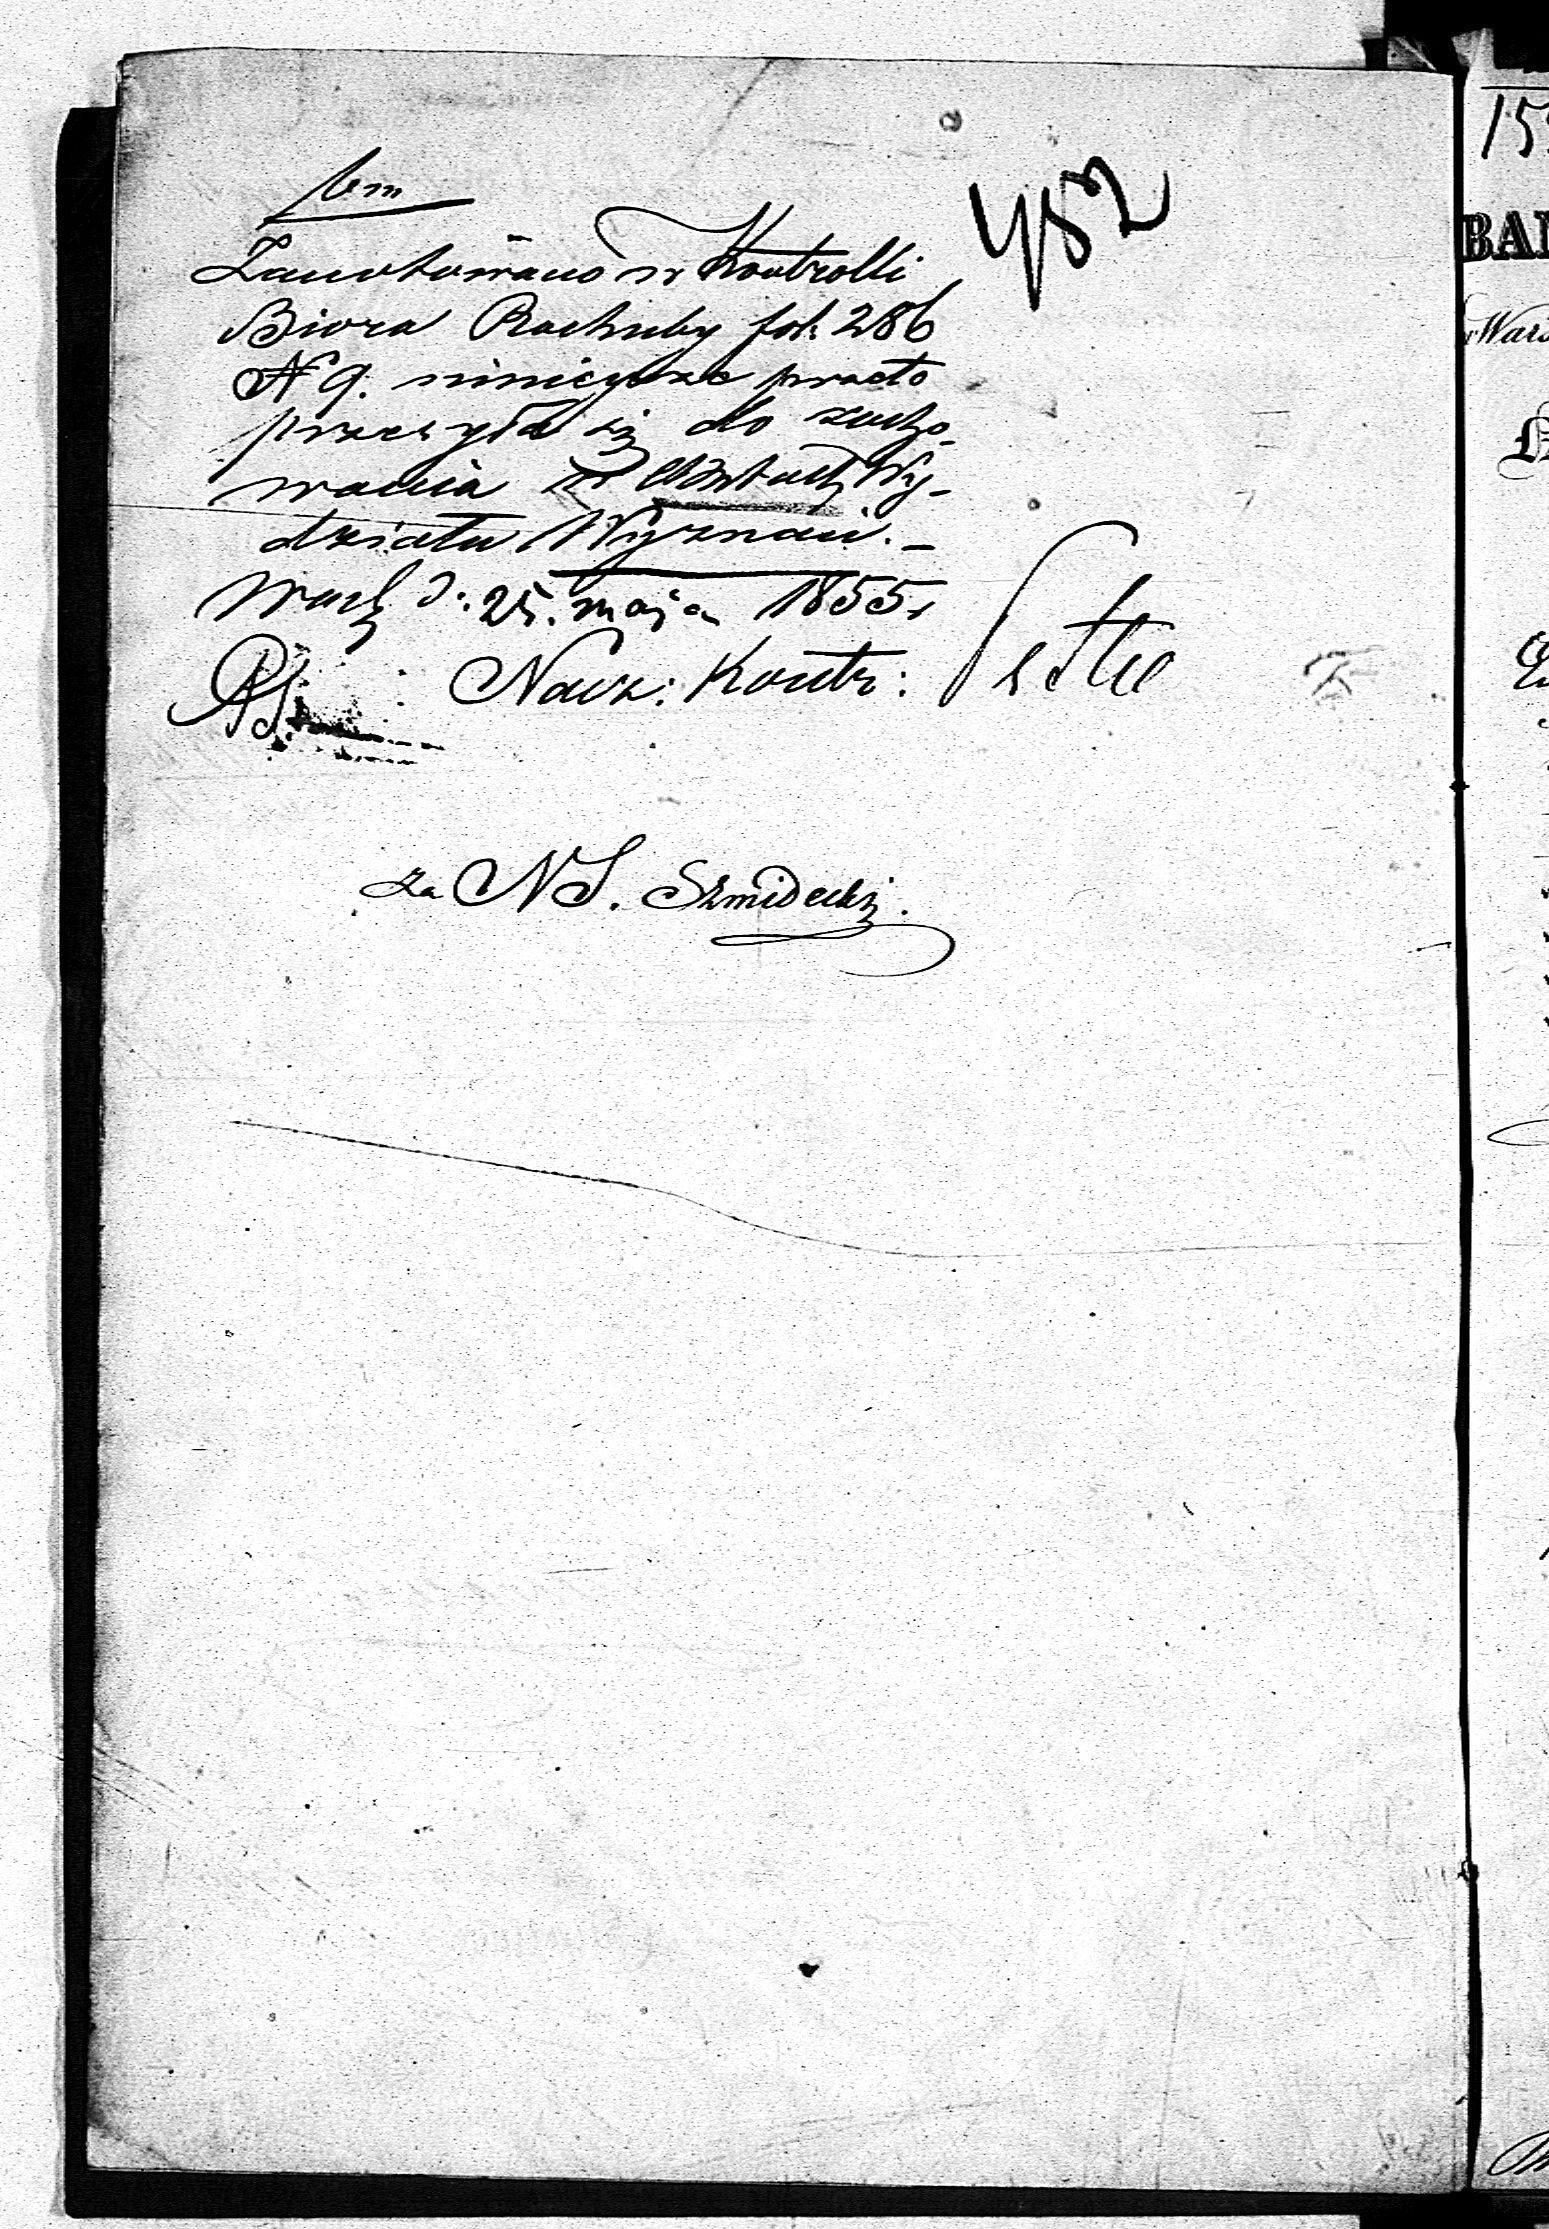 452
Zanotowano w Kontrolli
Biora Rachuby fol. 286
N 9. niniejsze przeto
przesyła się do zacho-
wania w Aktach Wy-
działu Wyznań. -
Warsz d. 25. maja 1855 r
Nacz: Kontr:
za NS. Szmidecki.
15
BAN
Wars